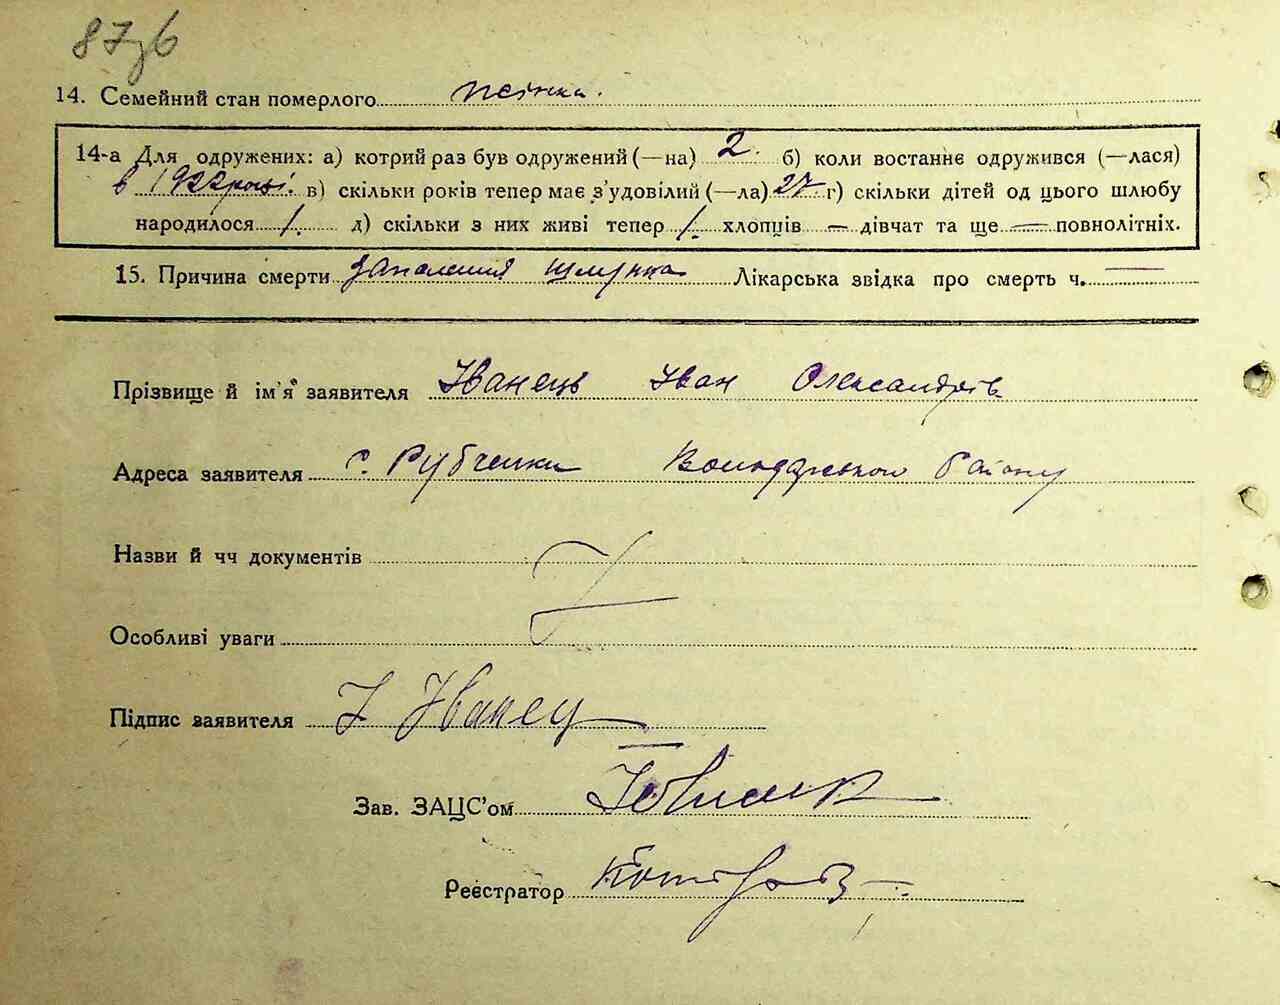 87
14. Семейний стан померлого жінка.
14-а Для одружених: а) котрий раз був одружений (—на) 2. б) коли востаннє одружився (—лася)
в 1922 році. в) скільки років тепер має з'удовілий (—ла) 27 г) скільки дітей од цього шлюбу
народилося 1. д) скільки з них живі тепер 1. хлопців — дівчат та ще — повнолітніх.
15. Причина смерти запалення шлунка Лікарська звідка про смерть ч. —
Прізвище й ім'я заявителя Іванець Іван Олександрів
Адреса заявителя с. Рубченки Володарського району
Назви й чч документів
Особливі уваги
Підпис заявителя І Іванец
Зав. ЗАЦС'ом
Реєстратор